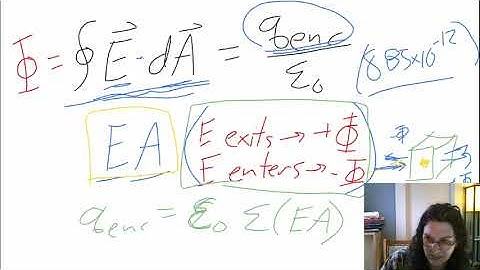 Φ = ∮ E⃗ · dA⃗ = qenc / ε₀ (8.85x10⁻¹²)
EA
E exits → +Φ
E enters → -Φ
-Φ
+Φ
qenc = ε₀ Σ(EA)